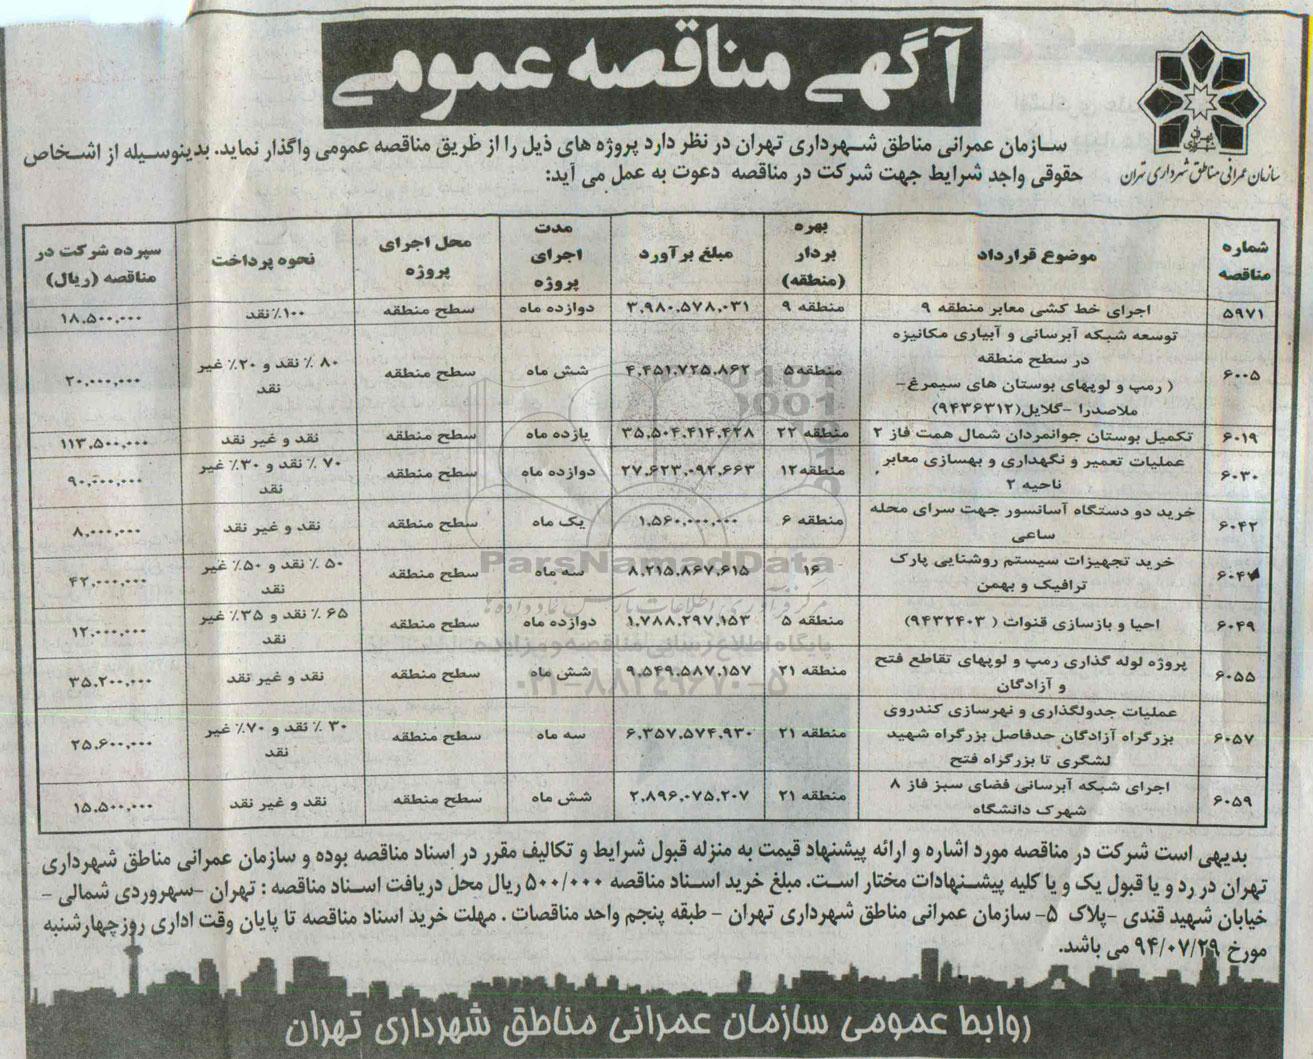 آگهی مناقصه عمومی
تهران
شهرداری
سازمان عمرانی مناطق شهرداری تهران
سازمان عمرانی مناطق شهرداری تهران در نظر دارد پروژه های ذیل را از طریق مناقصه عمومی واگذار نماید. بدینوسیله از اشخاص
حقوقی واجد شرایط جهت شرکت در مناقصه دعوت به عمل می آید:
شماره مناقصه | موضوع قرارداد | بهره بردار (منطقه) | مبلغ برآورد | مدت اجرای پروژه | محل اجرای پروژه | نحوه پرداخت | سپرده شرکت در مناقصه (ریال)
۵۹۷۱ | اجرای خط کشی معابر منطقه ۹ | منطقه ۹ | ۳,۹۸۰,۵۷۸,۰۳۱ | دوازده ماه | سطح منطقه | ۱۰۰٪ نقد | ۱۸,۵۰۰,۰۰۰
۶۰۰۵ | توسعه شبکه آبرسانی و آبیاری مکانیزه در سطح منطقه ( رمپ و لوپهای بوستان های سیمرغ- ملاصدرا -گلایل(۹۴۳۶۳۱۲) | منطقه ۵ | ۴,۴۵۱,۷۲۵,۸۶۲ | شش ماه | سطح منطقه | ۸۰ ٪ نقد و ۲۰٪ غیر نقد | ۲۰,۰۰۰,۰۰۰
۶۰۱۹ | تکمیل بوستان جوانمردان شمال همت فاز ۲ | منطقه ۲۲ | ۳۵,۵۰۴,۴۱۴,۴۲۸ | یازده ماه | سطح منطقه | نقد و غیر نقد | ۱۱۳,۵۰۰,۰۰۰
۶۰۳۰ | عملیات تعمیر و نگهداری و بهسازی معابر ناحیه ۲ | منطقه ۱۲ | ۲۷,۶۲۳,۰۹۲,۶۶۳ | دوازده ماه | سطح منطقه | ۷۰ ٪ نقد و ۳۰٪ غیر نقد | ۹۰,۰۰۰,۰۰۰
۶۰۴۲ | خرید دو دستگاه آسانسور جهت سرای محله ساعی | منطقه ۶ | ۱,۵۶۰,۰۰۰,۰۰۰ | یک ماه | سطح منطقه | نقد و غیر نقد | ۸,۰۰۰,۰۰۰
۶۰۴۷ | خرید تجهیزات سیستم روشنایی پارک ترافیک و بهمن | ۱۶ | ۸,۲۱۵,۸۶۷,۶۱۵ | سه ماه | سطح منطقه | ۵۰ ٪ نقد و ۵۰٪ غیر نقد | ۴۲,۰۰۰,۰۰۰
۶۰۴۹ | احیا و بازسازی قنوات ( ۹۴۳۲۴۰۳) | منطقه ۵ | ۱,۷۸۸,۲۹۷,۱۵۳ | دوازده ماه | سطح منطقه | ۶۵ ٪ نقد و ۳۵٪ غیر نقد | ۱۲,۰۰۰,۰۰۰
۶۰۵۵ | پروژه لوله گذاری رمپ و لوپهای تقاطع فتح و آزادگان | منطقه ۲۱ | ۹,۵۴۹,۵۸۷,۱۵۷ | شش ماه | سطح منطقه | نقد و غیر نقد | ۳۵,۲۰۰,۰۰۰
۶۰۵۷ | عملیات جدولگذاری و نهرسازی کندروی بزرگراه آزادگان حدفاصل بزرگراه شهید لشگری تا بزرگراه فتح | منطقه ۲۱ | ۶,۳۵۷,۵۷۴,۹۳۰ | سه ماه | سطح منطقه | ۳۰ ٪ نقد و ۷۰٪ غیر نقد | ۲۵,۶۰۰,۰۰۰
۶۰۵۹ | اجرای شبکه آبرسانی فضای سبز فاز ۸ شهرک دانشگاه | منطقه ۲۱ | ۲,۸۹۶,۰۷۵,۲۰۷ | شش ماه | سطح منطقه | نقد و غیر نقد | ۱۵,۵۰۰,۰۰۰
ParsNamadData
مرکز فرآوری اطلاعات پارس نماد داده ها
پایگاه اطلاع رسانی مناقصه و مزایده
۰۲۱-۸۸۳۴۹۶۷۰-۵
بدیهی است شرکت در مناقصه مورد اشاره و ارائه پیشنهاد قیمت به منزله قبول شرایط و تکالیف مقرر در اسناد مناقصه بوده و سازمان عمرانی مناطق شهرداری
تهران در رد و یا قبول یک و یا کلیه پیشنهادات مختار است. مبلغ خرید اسناد مناقصه ۵۰۰/۰۰۰ ریال محل دریافت اسناد مناقصه : تهران -سهروردی شمالی -
خیابان شهید قندی -پلاک ۵- سازمان عمرانی مناطق شهرداری تهران - طبقه پنجم واحد مناقصات . مهلت خرید اسناد مناقصه تا پایان وقت اداری روزچهارشنبه
مورخ ۹۴/۰۷/۲۹ می باشد.
روابط عمومی سازمان عمرانی مناطق شهرداری تهران